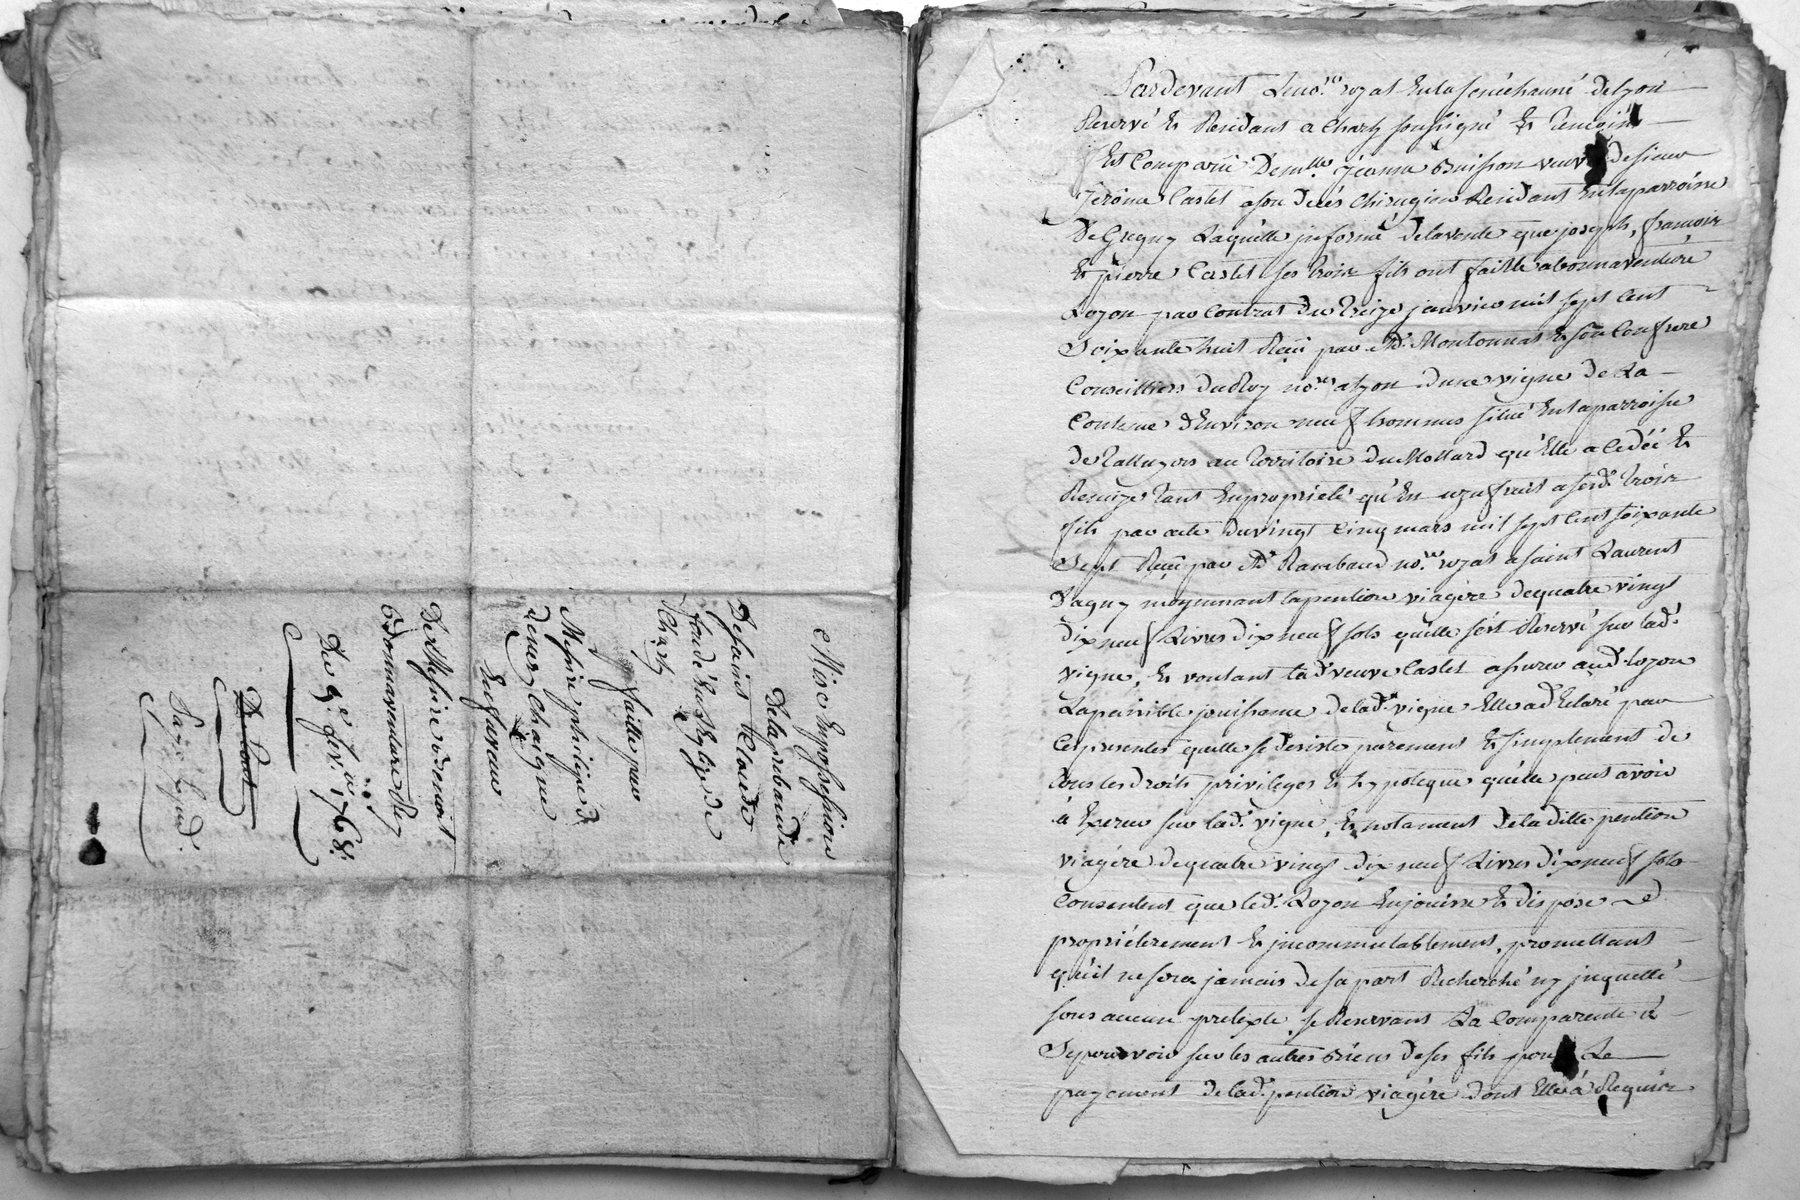 Mise En possession
De la prebande
De saint Claude
fondé En l'Eglise de
Charly
faitte par
Messire philipe d
denoz Chaigne
En faveur
De Messire benoit
Bonnaventure Rey
Du 9e fevr. 1768.
Pardevant Le no.re royal En la senechaussé de Lyon
Reservé Et Residant a Charly soussigné Et temoins
Est Comparüe Dem.lle jeanne Buisson veuve de sieur
Jérôme Castet a son decés Chirugien Residant En la parroisse
De Grigny Laquelle informé de la vente que joseph, francois
Et pierre Castet ses trois fils ont faitte a bonnaventure
Lozon par Contrat du treize janvier mil sept Cent
Soixante huit Reçu par Me. Montonnat Et son Confrere
Conseillers du Roy no.res a Lyon d'une vigne de La
Contenue d'Environ neuf hommes située En la parroisse
de Talluyers au territoire du Mollard qu'Elle a Cedée Et
Remize tant En propriété qu'En uzufruit a sesd. trois
fils par acte du vingt Cinq mars mil sept Cent soixante
Sept Reçu par Me. Rambaud no.re royal a saint Laurent
Dagny moyennant la pention viagere de quatre vingt
dix neuf Livres dix neuf sols quelle s'est Reservé sur lad.
vigne, Et voulant lad. veuve Castet assurer aud. Lozon
La paisible jouissance de lad. vigne Elle a declaré par
Ces presentes quelle se desiste purement Et simplement de
tous les droits privileges Et hypoteque quelle peut avoir
à Exercer sur lad. vigne, Et notament de la ditte pention
viagére de quatre vingt dix neuf Livres dix neuf sols
Consentent que led. Lozon En jouisse Et dispose
propriétérement Et incommutablement, promettant
qu'il ne sera jamais de sa part Recherché ny inquietté
sous aucun pretexte, se Reservant La Comparente à
Se pourvoir sur les autres Biens de ses fils pour Le
payement de lad. pention viagére dont Elle à Requis